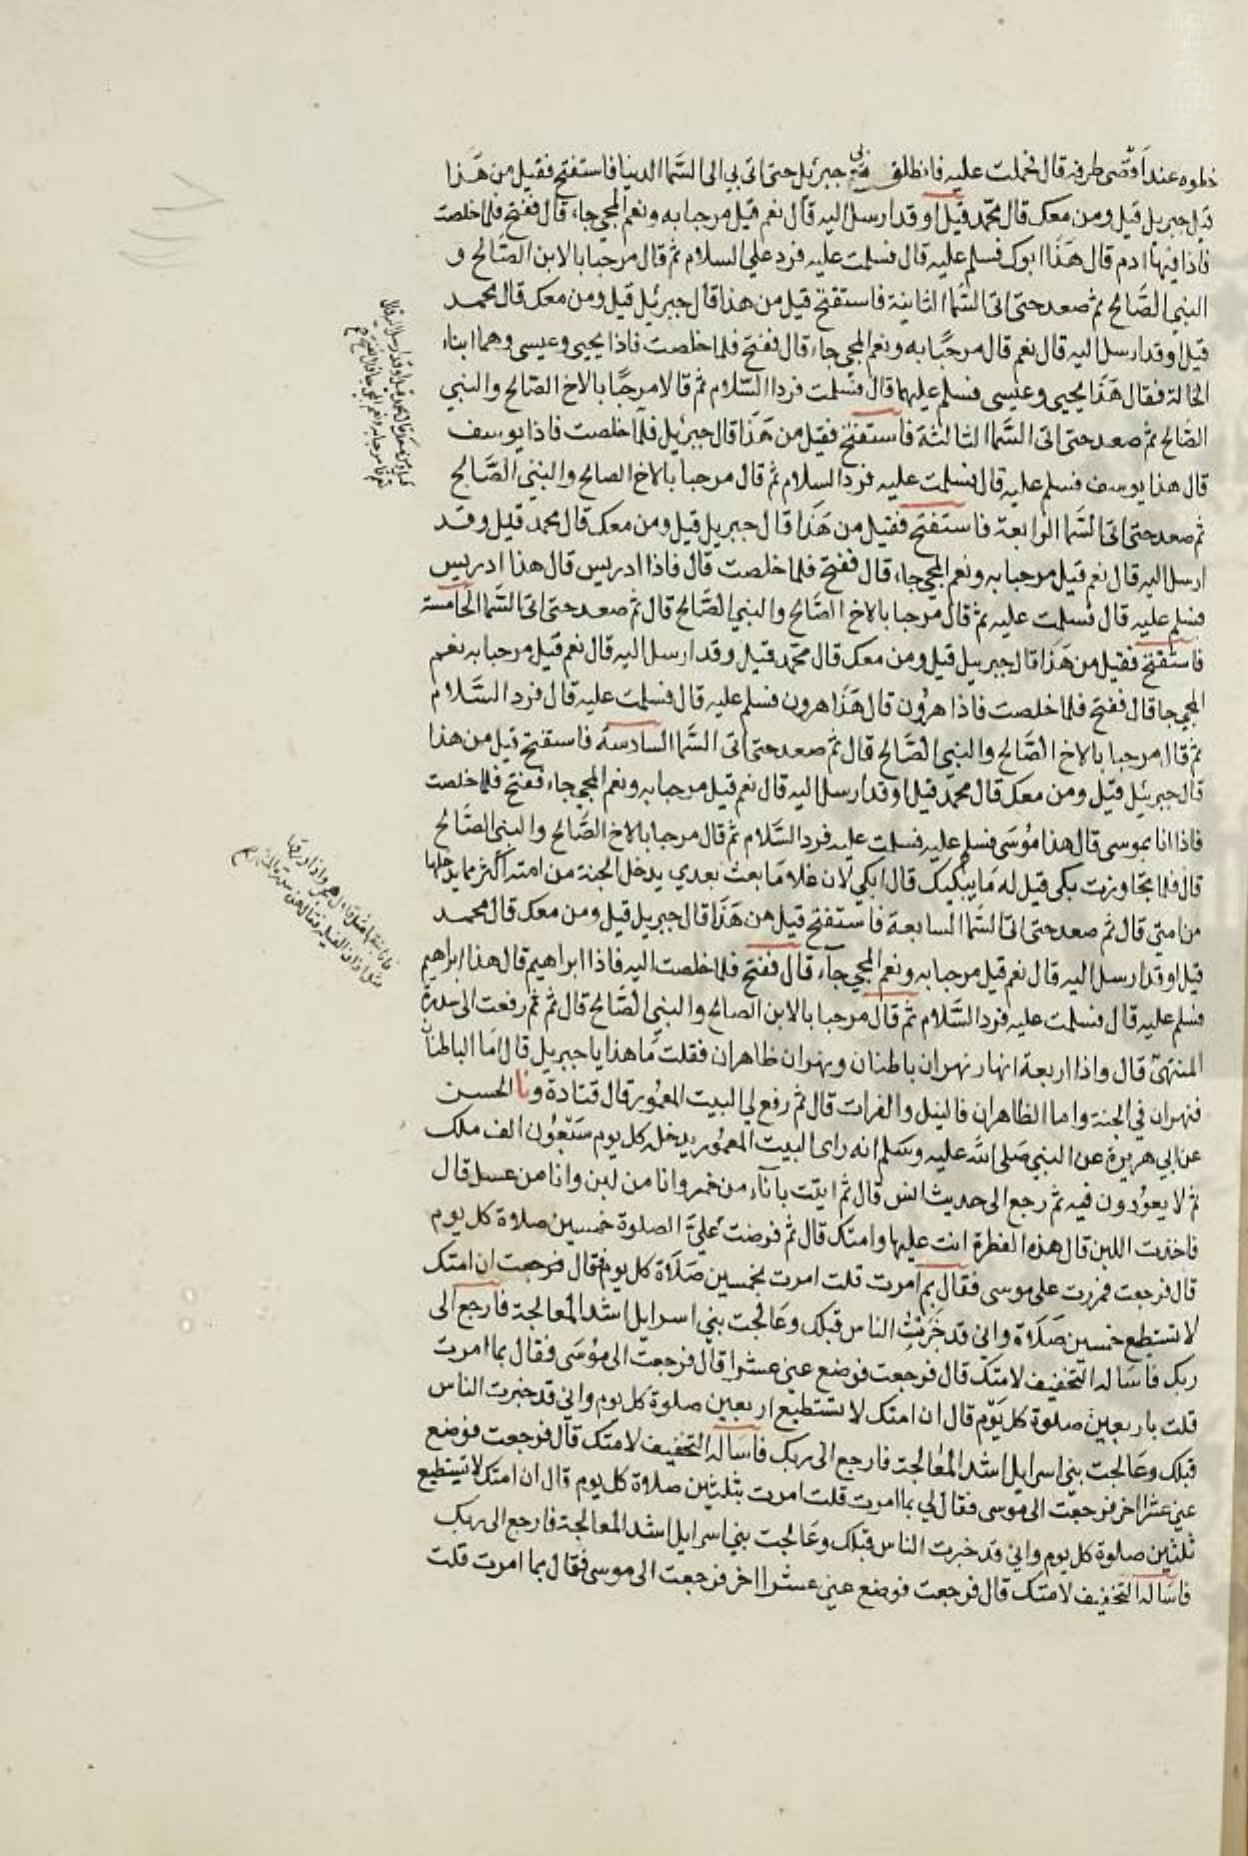 خطوه عند اقصى طرفه قال فحملت عليه فانطلق بي جبريل حتى اتى بي الى السما الدنيا فاستفتح فقيل من هذا
قيل جبريل قيل ومن معك قال محمد قيل او قد ارسل اليه قال نعم قيل مرحبا به ونعم المجي جاء قال ففتح فلما خلصت
فاذا فيها ادم قال هذا ابوك فسلم عليه قال فسلمت عليه فرد علي السلام ثم قال مرحبا بالابن الصالح و
النبي الصالح ثم صعد حتى اتى السما الثانية فاستفتح قيل من هذا قال جبريل قيل ومن معك قال محمد
قيل او قد ارسل اليه قال نعم قال مرحبا به ونعم المجي جاء قال ففتح فلما خلصت فاذا يحيى وعيسى وهما ابناء
الخالة فقال هذا يحيى وعيسى فسلم عليهما قال فسلمت فردا السلام ثم قالا مرحبا بالاخ الصالح والنبي
الصالح ثم صعد حتى اتى السما الثالثة فاستفتح فقيل من هذا قال جبريل فلما خلصت فاذا يوسف
قال هذا يوسف فسلم عليه قال فسلمت عليه فرد السلام ثم قال مرحبا بالاخ الصالح والنبي الصالح
ثم صعد حتى اتى السما الرابعة فاستفتح فقيل من هذا قال جبريل قيل ومن معك قال محمد قيل وقد
ارسل اليه قال نعم قيل مرحبا به ونعم المجي جاء قال ففتح فلما خلصت قال فاذا ادريس قال هذا ادريس
فسلم عليه قال فسلمت عليه ثم قال مرحبا بالاخ الصالح والنبي الصالح قال ثم صعد حتى اتى السما الخامسة
فاستفتح فقيل من هذا قال جبريل قيل ومن معك قال محمد قيل وقد ارسل اليه قال نعم قيل مرحبا به نعم
المجي جا قال ففتح فلما خلصت فاذا هرون قال هذا هرون فسلم عليه قال فسلمت عليه قال فرد السلام
ثم قال مرحبا بالاخ الصالح والنبي الصالح قال ثم صعد حتى اتى السما السادسة فاستفتح قيل من هذا
قال جبريل قيل ومن معك قال محمد قيل او قد ارسل اليه قال نعم قيل مرحبا به ونعم المجي جاء ففتح فلما خلصت
فاذا انا بموسى قال هذا موسى فسلم عليه فسلمت عليه فرد السلام ثم قال مرحبا بالاخ الصالح والنبي الصالح
قال فلما تجاوزت بكى قيل له ما يبكيك قال ابكي لان غلاما بعث بعدي يدخل الجنة من امته اكثر مما يدخلها
من امتي قال ثم صعد حتى اتى السما السابعة فاستفتح قيل من هذا قال جبريل قيل ومن معك قال محمد
قيل او قد ارسل اليه قال نعم قيل مرحبا به ونعم المجي جاء قال ففتح فلما خلصت اليه فاذا ابراهيم قال هذا ابراهيم
فسلم عليه قال فسلمت عليه فرد السلام ثم قال مرحبا بالابن الصالح والنبي الصالح قال ثم ثم رفعت الى سدرة
المنتهى قال واذا اربعة انهار نهران باطنان ونهران ظاهران فقلت ما هذا يا جبريل قال اما الباطنان
فنهران في الجنة واما الظاهران فالنيل والفرات قال ثم رفع لي البيت المعمور قال قتادة ونا الحسن
عن ابي هريرة عن النبي صلى الله عليه وسلم انه راى البيت المعمور يدخله كل يوم سبعون الف ملك
ثم لا يعودون فيه ثم رجع الى حديث انس قال ثم اتيت باناء من خمر وانا من لبن وانا من عسل قال
فاخذت اللبن قال هذه الفطرة انت عليها وامتك قال ثم فرضت علي الصلوة خمسين صلاة كل يوم
قال فرجعت فمررت على موسى فقال بم امرت قلت امرت بخمسين صلاة كل يوم فقال فرجعت ان امتك
لا تستطيع خمسين صلاة واني قد خبرت الناس قبلك وعالجت بني اسرايل اشد المعالجة فارجع الى
ربك فاساله التخفيف لامتك قال فرجعت فوضع عني عشرا قال فرجعت الى موسى فقال بما امرت
قلت باربعين صلوة كل يوم قال ان امتك لا تستطيع اربعين صلوة كل يوم واني قد خبرت الناس
قبلك وعالجت بني اسرايل اشد المعالجة فارجع الى ربك فاساله التخفيف لامتك قال فرجعت فوضع
عني عشرا اخر فرجعت الى موسى فقال لي بما امرت قلت امرت بثلثين صلاة كل يوم قال ان امتك لا تستطيع
ثلثين صلوة كل يوم واني قد خبرت الناس قبلك وعالجت بني اسرايل اشد المعالجة فارجع الى ربك
فاساله التخفيف لامتك قال فرجعت فوضع عني عشرا اخر فرجعت الى موسى فقال بما امرت قلت